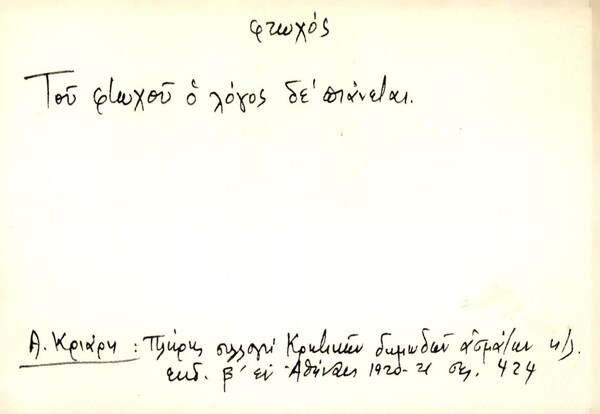 φτωχός
Τοῦ φτωχοῦ ὁ λόγος δέ πιάνεται.
Α. Κριάρη : Πλήρης συλλογή Κρητικῶν δημωδῶν ᾀσμάτων κ.λ.
ἐκδ. β´ ἐν Ἀθήναις 1920-21 σελ. 424